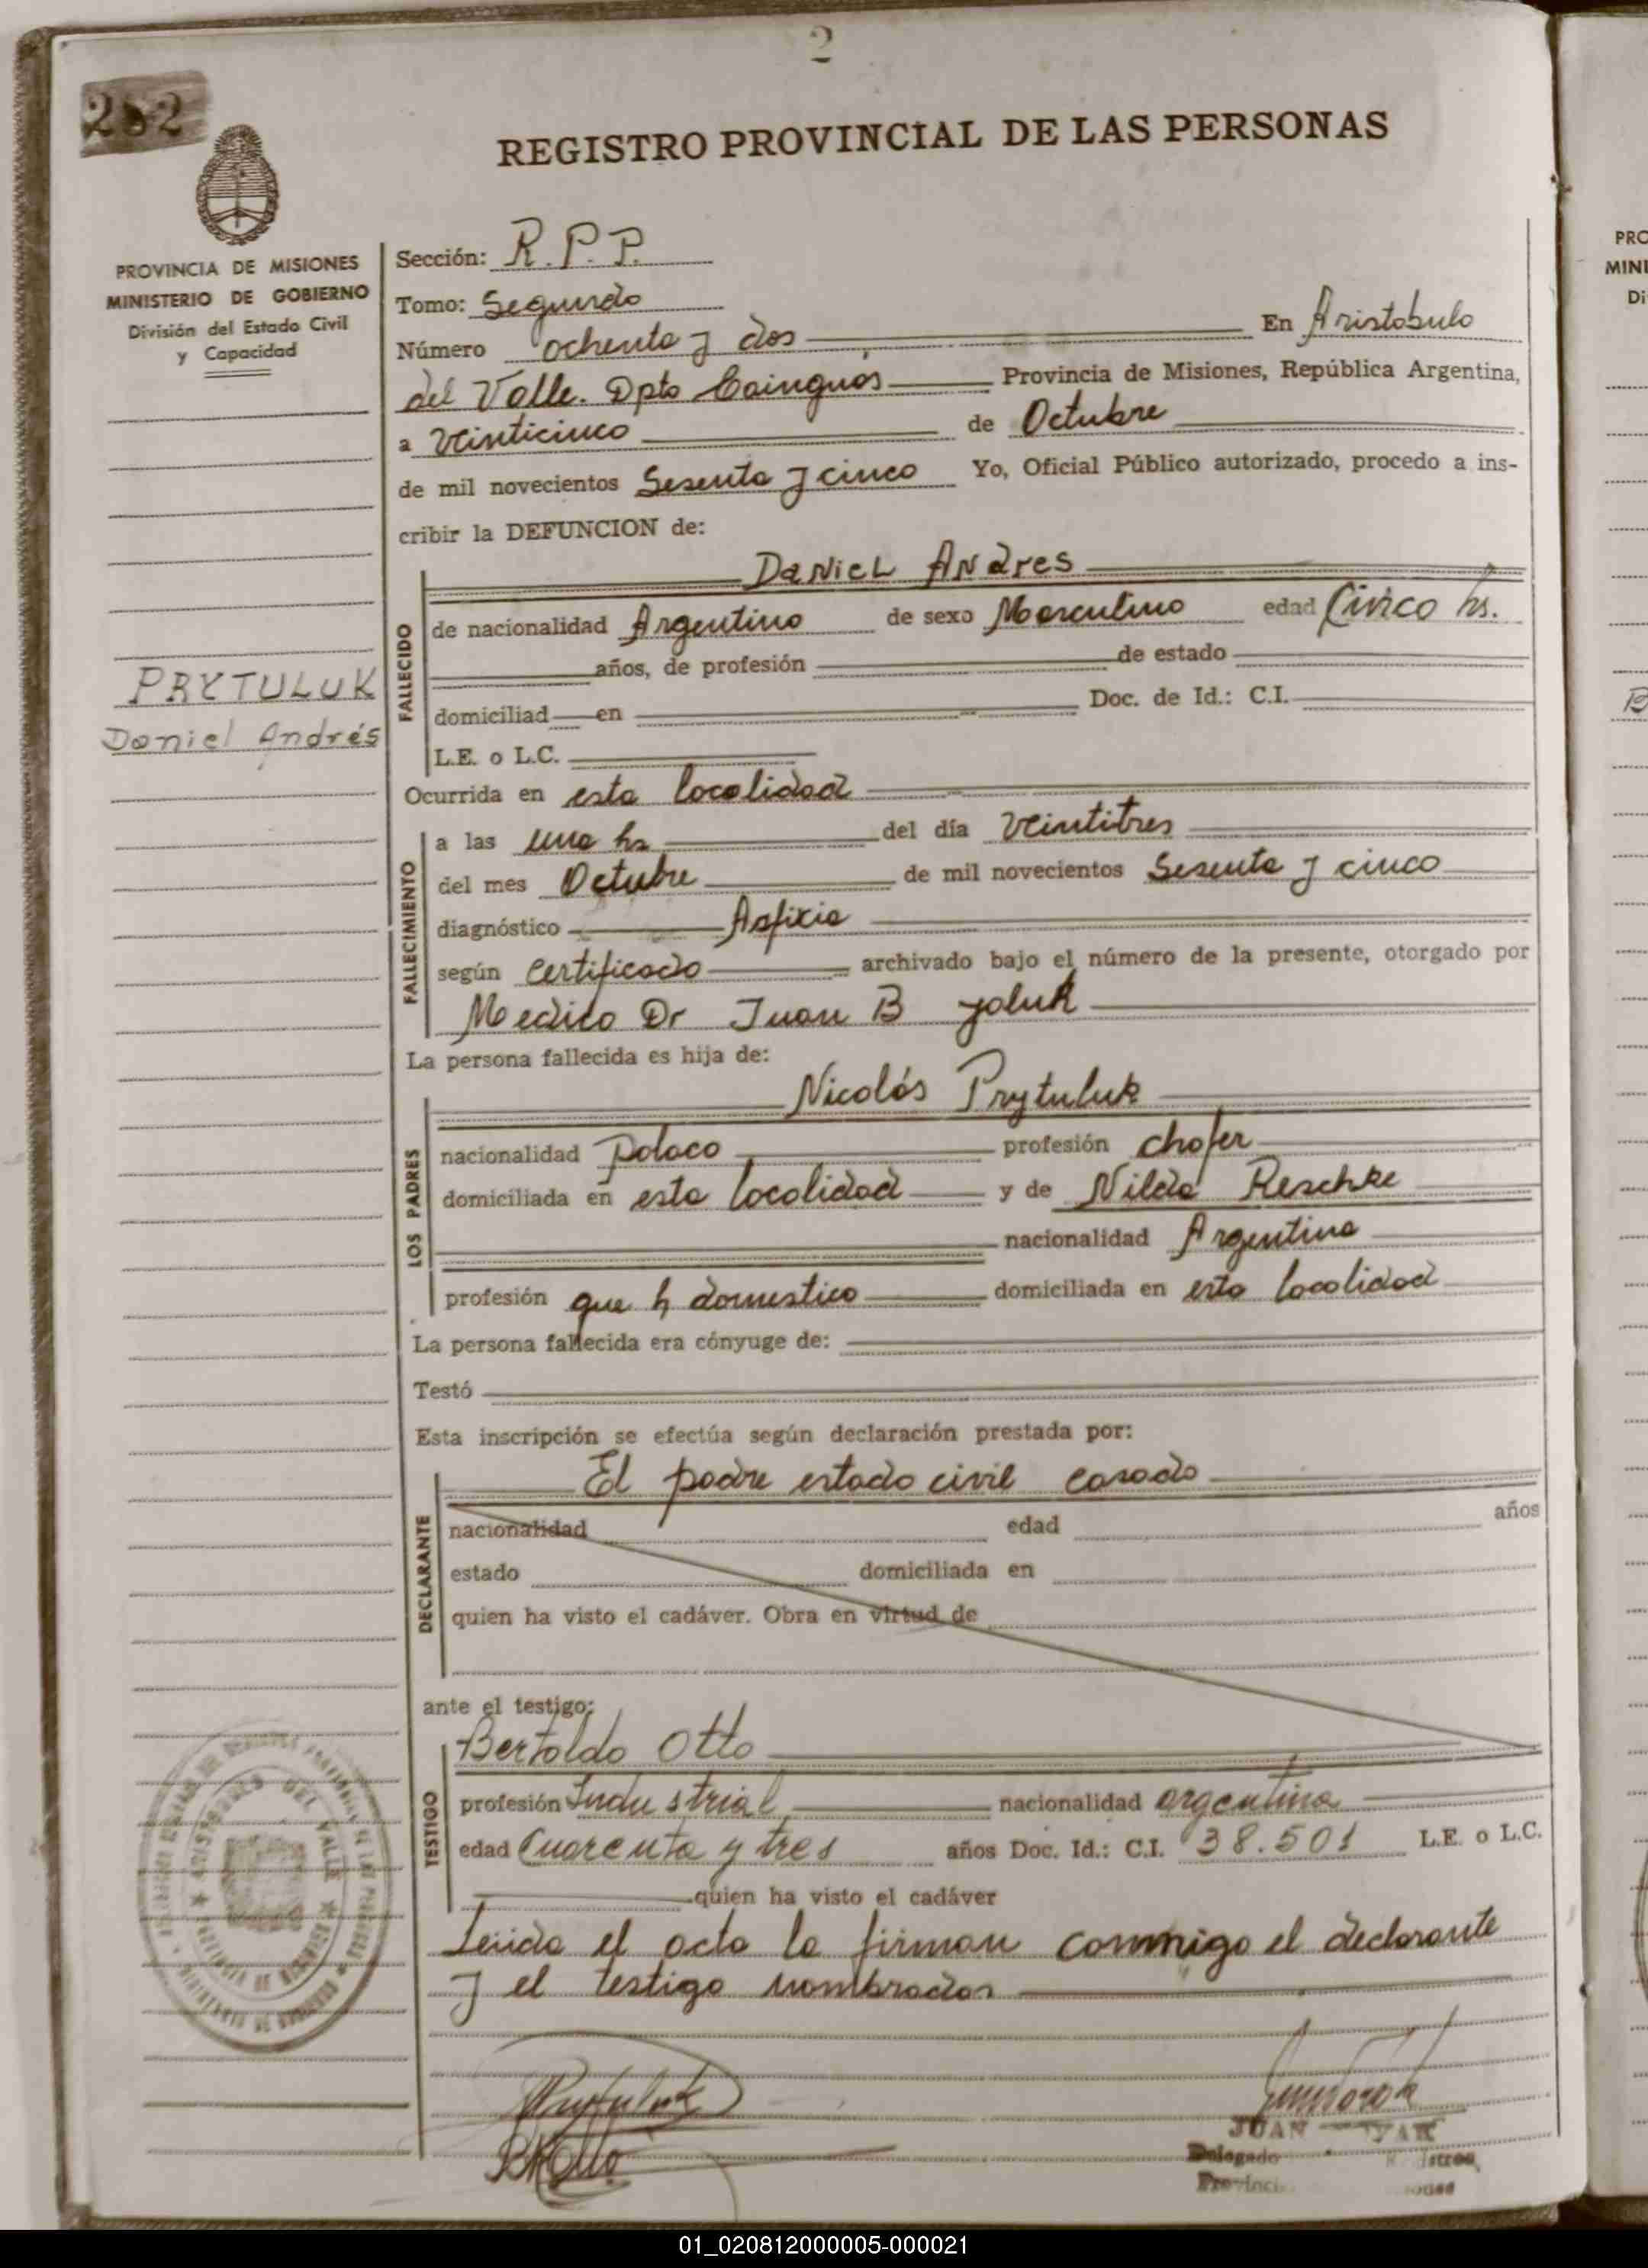 2
282
REGISTRO PROVINCIAL DE LAS PERSONAS
PROVINCIA DE MISIONES
MINISTERIO DE GOBIERNO
División del Estado Civil
y Capacidad
Sección: R.P.P.
Tomo: Segundo
Número ochenta y dos En Aristobulo
del Valle. Dpto Cainguas Provincia de Misiones, República Argentina,
a veinticinco de Octubre
de mil novecientos Sesenta y cinco Yo, Oficial Público autorizado, procedo a ins-
cribir la DEFUNCION de:
Daniel Andres
FALLECIDO
de nacionalidad Argentino de sexo Masculino edad Cinco hs.
años, de profesión de estado
PRYTULUK
Daniel Andrés
domiciliad en Doc. de Id.: C.I.
L.E. o L.C.
Ocurrida en esta localidad
FALLECIMIENTO
a las una hs del día veintitres
del mes Octubre de mil novecientos Sesenta y cinco
diagnóstico Asfixia
según certificado archivado bajo el número de la presente, otorgado por
Medico Dr Juan B
La persona fallecida es hija de:
Nicolás Prytuluk
LOS PADRES
nacionalidad polaco profesión chofer
domiciliada en esta localidad y de Nilda Reschke
nacionalidad Argentina
profesión que h domestico domiciliada en esta localidad
La persona fallecida era cónyuge de:
Testó
Esta inscripción se efectúa según declaración prestada por:
El padre estado civil casado
DECLARANTE
nacionalidad edad años
estado domiciliada en
quien ha visto el cadáver. Obra en virtud de
ante el testigo:
Bertoldo Otto
TESTIGO
profesión Industrial nacionalidad argentina
edad Cuarenta y tres años Doc. Id.: C.I. 38.501 L.E. o L.C.
quien ha visto el cadáver
Leida el acta la firman conmigo el declarante
y el testigo nombrados
ARISTOBULO DEL VALLE
JUAN
Delegado
01_020812000005-000021